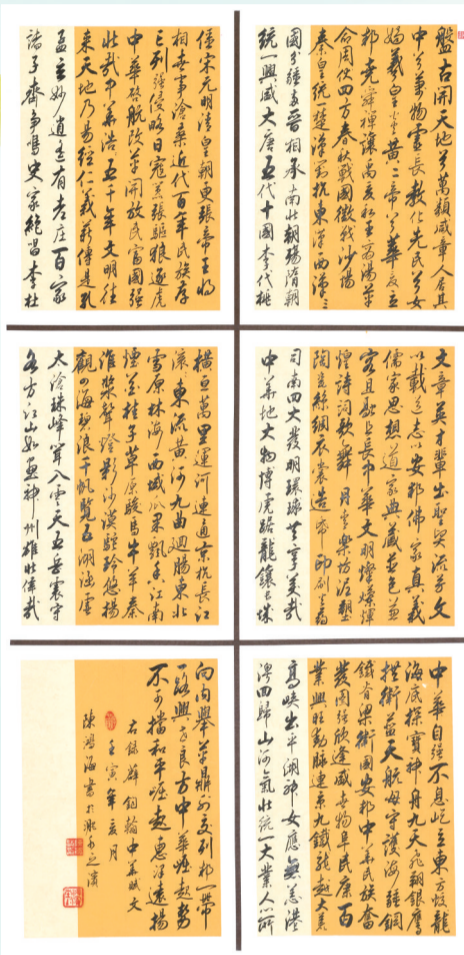 盤古開天地兮萬類咸章人居其
中兮萬物靈長教化先民兮女
媧羲皇炎黃二帝兮華夏立
邦堯舜禪讓禹商湯革
命周伐四方春秋戰國徵戰沙場
秦皇統一楚漢對抗東漢西漢三
國分疆晉相承南北朝殤隋朝
統一興盛大唐五代十國李代桃
僵宋元明清皇朝更張帝王將
相世事滄桑近代百年民族存
亡列強侵略日寇囂張驅狼逐虎
中華啓航改革開放民富國強
壯哉中華浩浩五千年文明往
來天地乃易經仁義薪傳是孔
孟玄妙逍遙有老莊百家
諸子齊爭鳴史家絕唱李杜
文章英才輩出聖賢流芳文
以載道志以安邦佛家真義
儒家思想道家典藏並包兼
容且融且長中華文明燦爛輝
煌詩詞歌舞樂坊泥塑
陶瓷絲綢衣裳造紙印刷火藥
司南四大發明環球共享美哉
中華地大物博虎踞龍驤珠
橫亙萬里運河連通京杭長江
滾滾東流黃河九曲迴腸東北
雪原林海西域瓜果飄香江南
煙雨桂子草原駿馬牛羊秦
淮槳聲燈影沙漠駝玲悠揚
觀四海碧浪千帆覽五湖
太滄珠峰聳入雲天五岳震守
各方江山如畫神州雄壯偉哉
中華自強不息屹立東方蛟龍
海底探寶神舟九天飛翔銀鷹
拱衛藍天航母守護海疆鋼
鐵脊梁衛國安邦中華民族奮
發圖強欣逢盛世物阜民康百
業興旺動脈連京九鐵龍越大漠
高峽出平湖神女應無恙港
澳回歸山河氣壯統一大業人心所
向內舉革鼎外交列邦一帶
一路興旺良方中華崛起勢
不可擋和平崛起惠澤遠揚
右錄薛錫輪中華賦文
壬寅年亥月
陳鴻海書於之濱